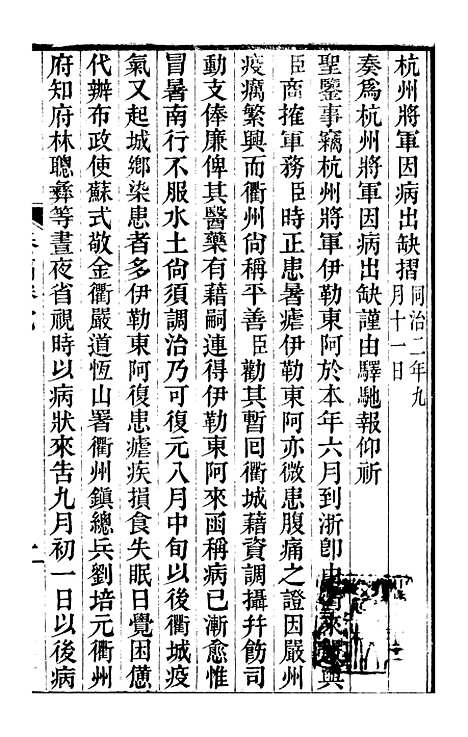 杭州將軍因病出缺摺同治二年九月十一日
奏爲杭州將軍因病出缺謹由驛馳報仰祈
聖鑒事竊杭州將軍伊勒東阿於本年六月到浙卽由衢來嚴與
臣商搉軍務臣時正患暑瘧伊勒東阿亦微患腹痛之證因嚴州
疫癘繁興而衢州尙稱平善臣勸其暫囘衢城藉資調攝幷飭司
動支俸廉俾其醫藥有藉嗣連得伊勒東阿來函稱病已漸愈惟
冒暑南行不服水土尙須調治乃可復元八月中旬以後衢城疫
氣又起城鄉染患者多伊勒東阿復患瘧疾損食失眠日覺困憊
代辦布政使蘇式敬金衢嚴道恆山署衢州鎭總兵劉培元衢州
府知府林聰彝等晝夜省視時以病狀來吿九月初一日以後病